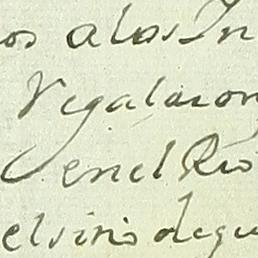 os alos In
Vegalaron
en el Rio
el sirio de qu